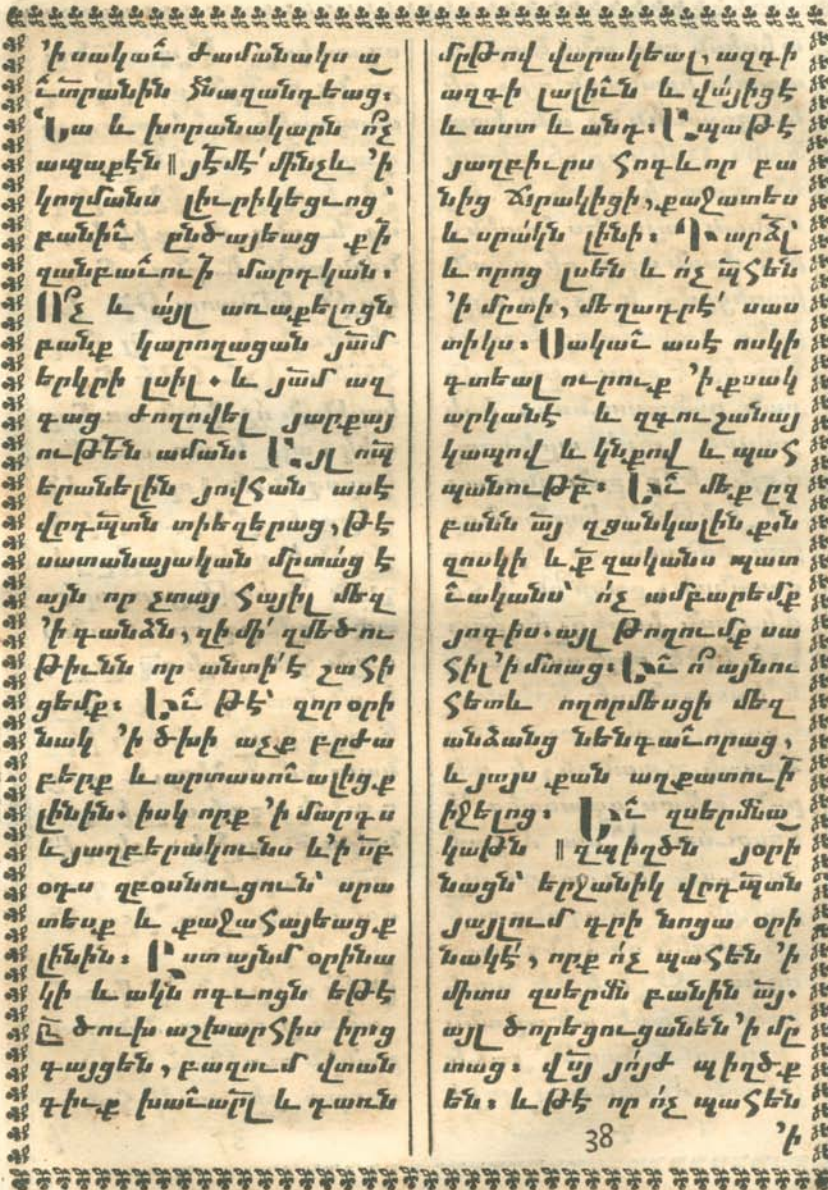 ՚ի սակաւ̂ ժամանակս ա
ւ̂տրանին հնազանդեաց։
Նա և խորանակարն ո՛չ
ապաքէն ‖ յէ՛մէ՛ մինչև ՚ի
կողմանս լիւրիկեցւոց՝
բանիւ̂ ընծայեաց ք̃ի
զանբաւ̂ու̃ի մարդկան։
Ո՛չ և այլ առաքելոցն
բանք կարողացան յա̃մ
երկրի լսիլ. և յա̃մ ազ
գաց ժողովել յարքայ
ութե̃ն աման։ Այլ ո̃պ
երանելին յովհան ասէ
վրդպ̃տն տիեզերաց, թէ
սատանայական մըտաց է
այն որ չտայ հայիլ մեզ
՚ի գանձն, զի մի՛ զմեծու
թիւնն որ անտի՛ է շահի
ցեմք։ Եւ̂ թէ՛ զոր օրի
նակ ՚ի ծխի աչք բըժա
բերք և արտասուալիցք
լինին. իսկ որք ՚ի մարգս
և յաղբերակունս և՚ի ս̃բ
օդս զբօսնուցուն՝ սրա
տեսք և քաջահայեացք
լինին։ Ըստ այնմ օրինա
կի և ակն ոգւոցն եթէ
՚ի ծուխ աշխարհիս իրաց
գայցեն, բազում վտան
գիւք խաւարի̃լ և դառն
մըթով վարակեալ, ազգի
ազգի լալիւ̂ն և վայիցէ
և աստ և անդ։ Ապա թէ
յաղբիւրս հոգևոր բա
նից ճըրակիցի, քաջատես
և սրակն լինի։ Դարձլ̃
և որոց լսեն և ո՛չ պ̃հեն
՚ի մըտի, մեղադրէ՛ սաս
տիկս։ Սակաւ̂ ասէ ոսկի
գտեալ ուրուք ՚ի քսակ
արկանէ և զգուշանայ
կապով և կնքով և պահ
պանութբ̃։ Եւ̂ մեք ըզ
բանն ա̃յ զցանկալին քն
զոսկի և ք̃ զականս պատ
ւ̂ականս՝ ո՛չ ամբարեմք
յոգիս. այլ թողումք սա
հիլ՚ի մտաց։ Եւ̂ ո՛ այնու
հետև ողորմեսցի մեզ
անձանց նենգաւ̂որաց,
և յայս քան աղքատու̃ի
իջելոց։ Եւ̂ զսերմնա
կաթն ‖ զպիղծն յօրի
նացն՝ երջանիկ վրդպ̃տն
յայլում գրի նոցա օրի
նակէ՛, որք ո՛չ պահեն ՚ի
միտս զսերմն բանին ա̃յ.
այլ ծորեցուցանեն՚ի մը
տաց։ վս̃յ յոյժ պիղծք
են։ և թէ որ ո՛չ պահեն
38
՚ի